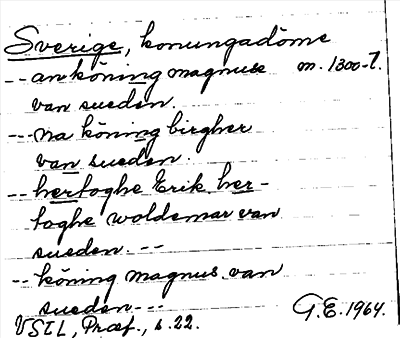 Sverige, konungadöme
-- an köning magnuse m. 1300-t.
van sueden.
--- na köning birgher
van sueden.
-- hertoghe Erik her-
toghe woldemar van
sueden. --
-- köning magnus van
sueden ---
VSLL, Præf., s. 22. G.E. 1964.